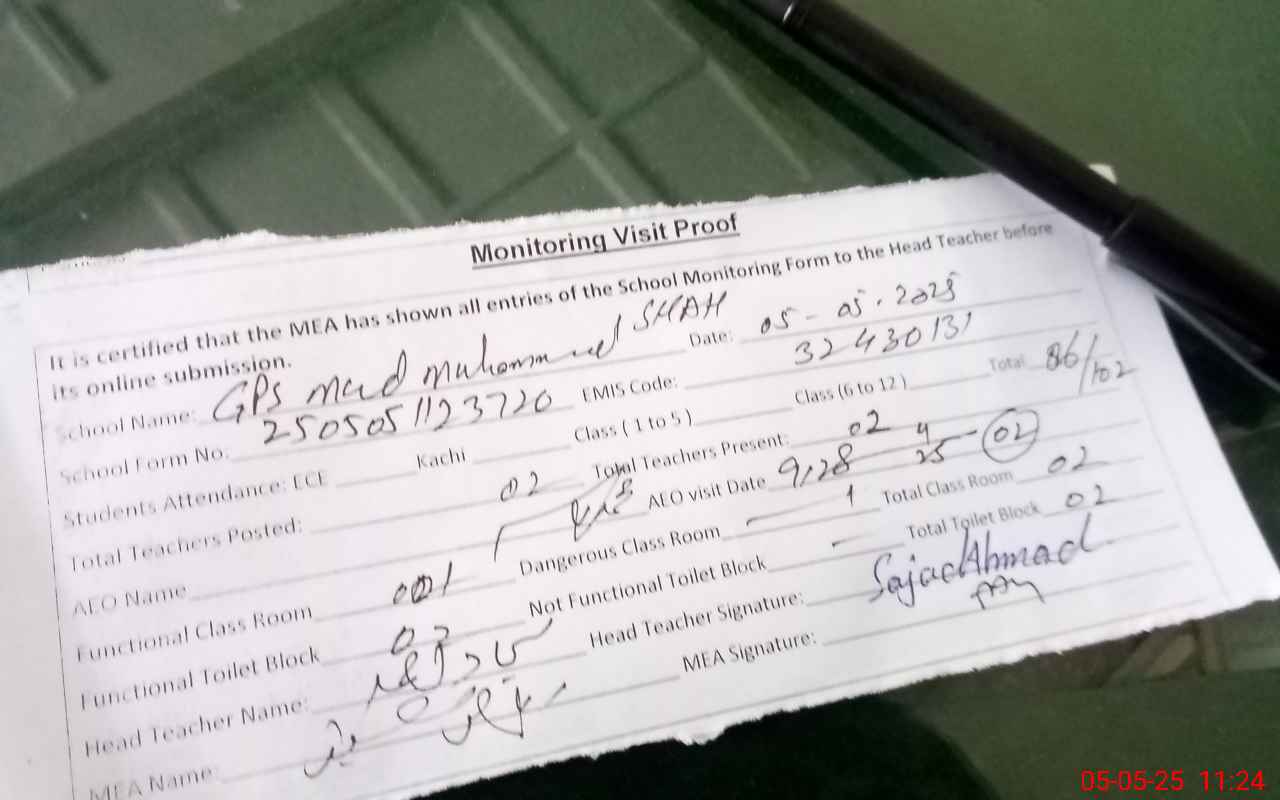 Monitoring Visit Proof
It is certified that the MEA has shown all entries of the School Monitoring Form to the Head Teacher before
its online submission.
School Name: GPS Muhammad SHAH Date: 05-05.2025
School Form No: 2505051123720 EMIS Code: 32430131
Students Attendance: ECE Kachi Class ( 1 to 5 ) Class (6 to 12 ) Total 86/102
Total Teachers Posted: 02 Total Teachers Present: 02
AEO Name AEO visit Date 9,28 4 25 02
Functional Class Room Dangerous Class Room 1 Total Class Room 02
Functional Toilet Block 02 Not Functional Toilet Block Total Toilet Block 02
Head Teacher Name: Head Teacher Signature: Sajad Ahmad
MEA Name: MEA Signature:
05-05-25 11:24